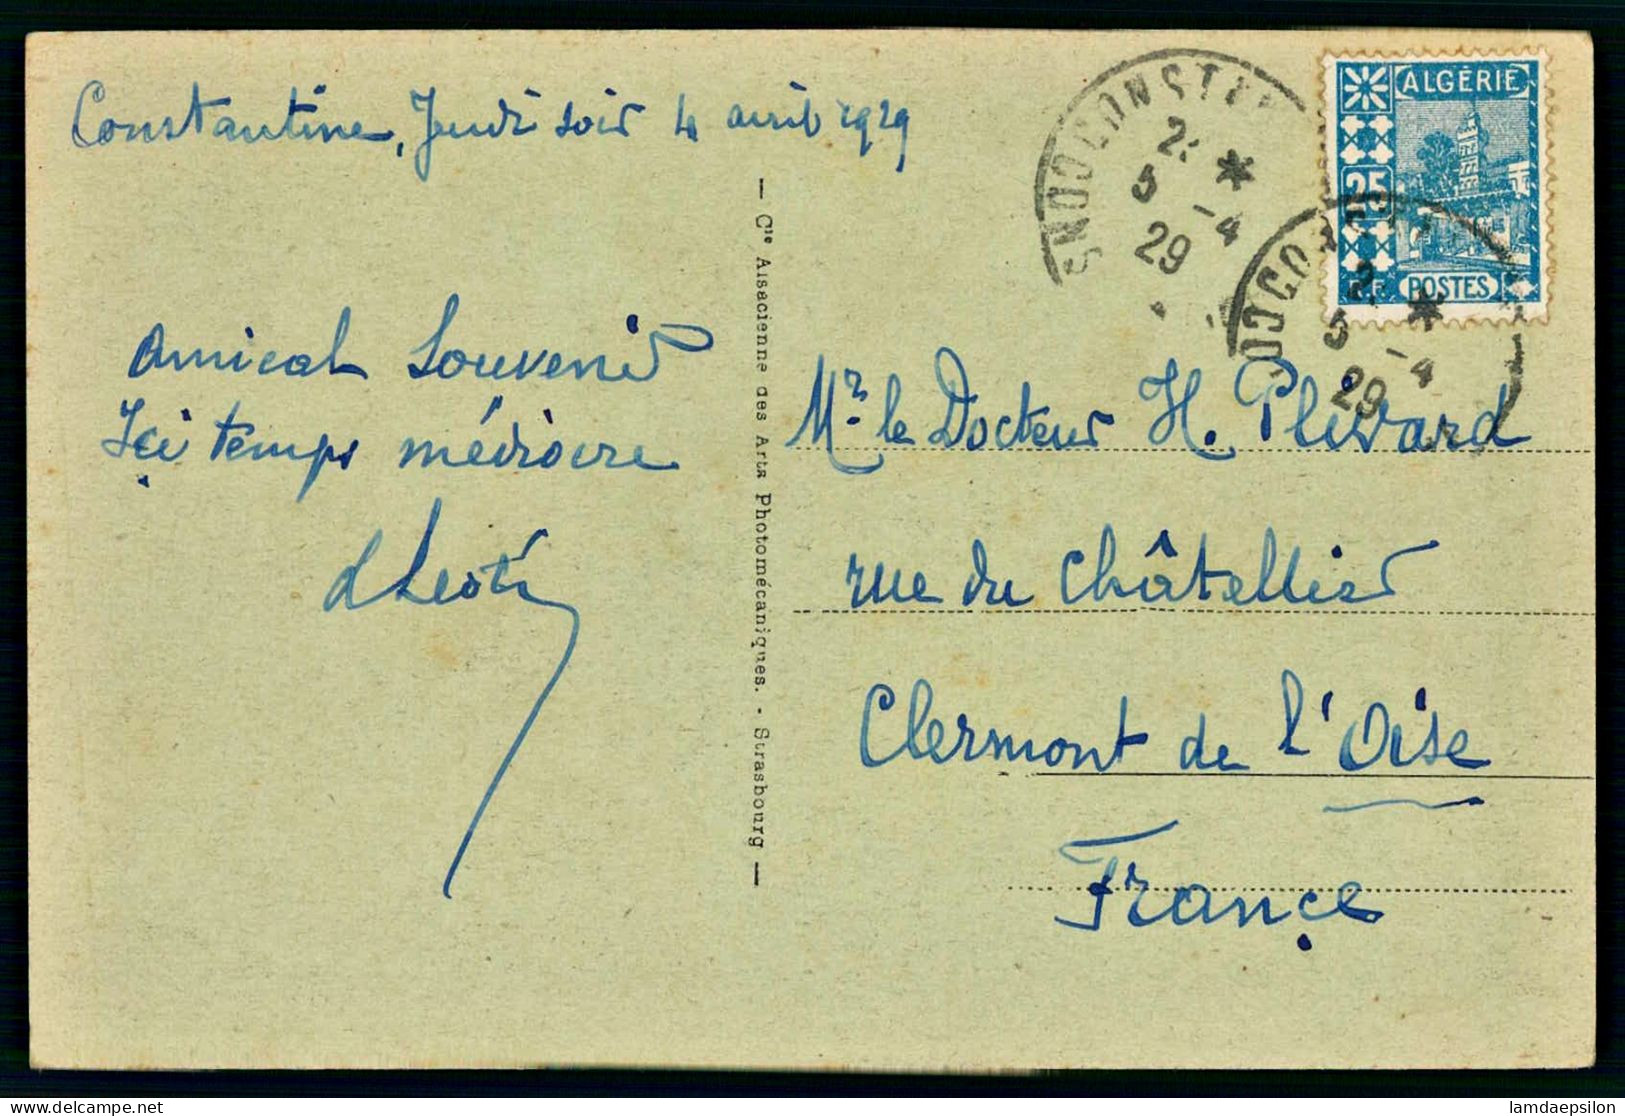 Constantine, Jeudi soir 4 avril 1929
Amical Souvenir
Ici temps médiocre
Mr. le Docteur H. Plivard
rue du Châtellier
Clermont de l'Oise
France
— Cie Alsacienne des Arts Photomécaniques. - Strasbourg —
ALGÉRIE
25
R.F. POSTES
5 -4
29
5 -4
29
delcampe.net
lamdaepsilon